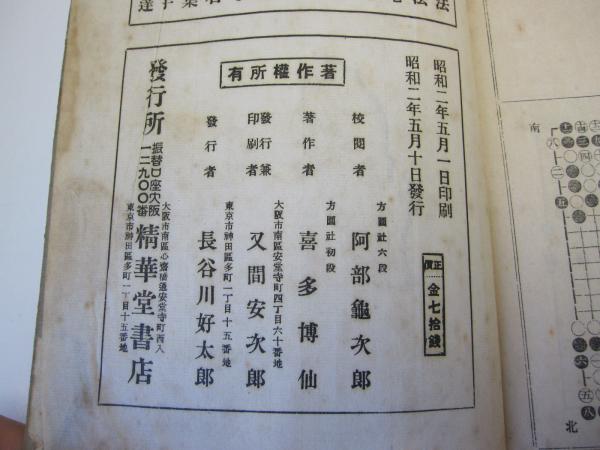 昭和二年五月一日印刷
昭和二年五月十日發行
正價 金七拾錢
著作權所有
校閱者 方圓社六段 阿部龜次郎
著作者 方圓社初段 喜多博仙
發行兼印刷者 大阪市南區安堂寺町四丁目六十番地 又間安次郎
發行者 東京市神田區多町一丁目十五番地 長谷川好太郎
發行所
振替口座大阪
一二九〇〇番
大阪市南區心齋橋通安堂寺町西入
東京市神田區多町一丁目十五番地
精華堂書店
南
北